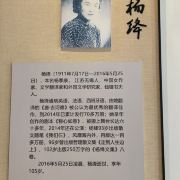 杨绛
杨绛（1911年7月17日—2016年5月25
日），本名杨季康，江苏无锡人，中国女作
家、文学翻译家和外国文学研究家，钱锺书夫
人。
杨绛通晓英语、法语、西班牙语，由她翻
译的《唐·吉诃德》被公认为最优秀的翻译佳
作，到2014年已累计发行70多万册；她早年
创作的剧本《称心如意》，被搬上舞台长达六
十多年，2014年还在公演；杨绛93岁出版散文
随笔《我们仨》，风靡海内外，再版达一百多
万册，96岁成出版哲理散文集《走到人生边
上》，102岁出版250万字的《杨绛文集》八
卷。
2016年5月25日凌晨，杨绛逝世，享年
105岁。